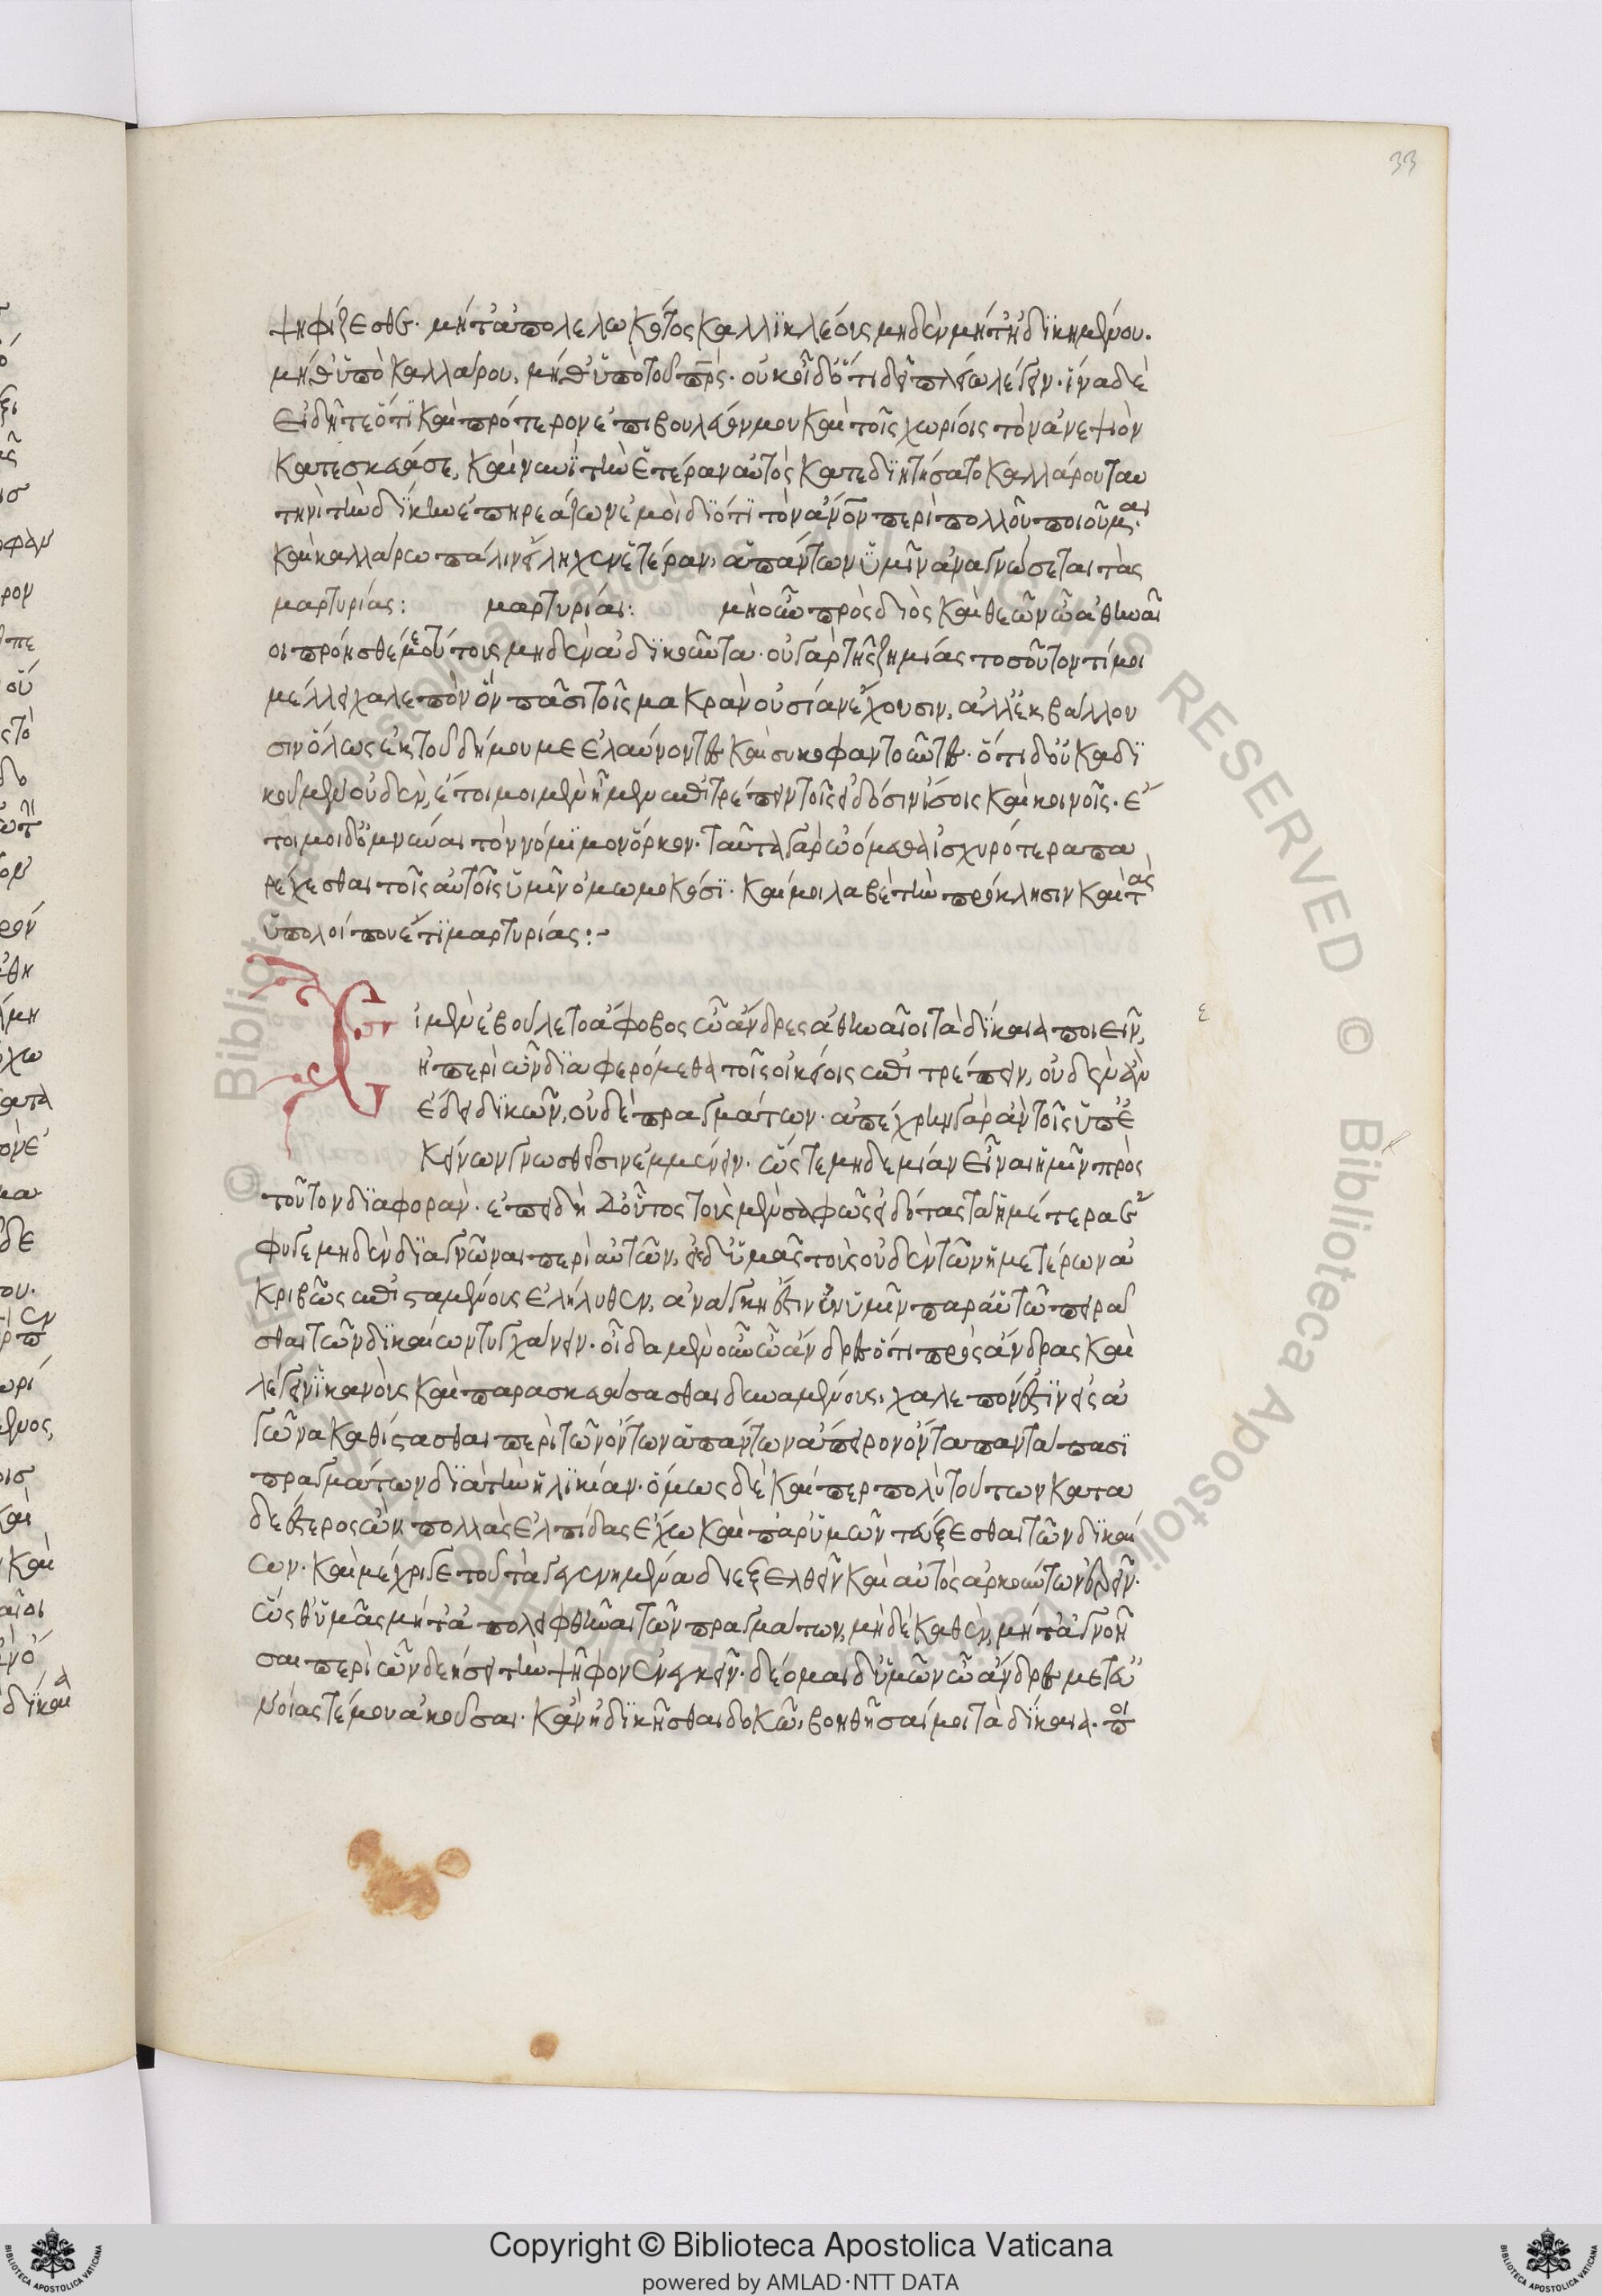 33
ψηφίζεσθε· μήτ' ἀπολελωκότος Καλλικλέους μηδὲν μήτ' ἠδικημένου·
μήθ' ὑπὸ Καλλάρου, μήθ' ὑπὸ τοῦ πρς· οὐκ οἶδ' ὅτι δεῖ πλείω λέγειν· ἵνα δὲ
εἰδῆτε ὅτι καὶ πρότερον ἐπιβουλεύων μου καὶ τοῖς χωρίοις τὸν ἀνεψιὸν
κατεσκεύασε, καὶ νυνὶ τὴν ἑτέραν αὐτὸς κατεδιῃτήσατο Καλλάρου ταύ
την τὴν δίκην ἐπηρεάζων ἐμοὶ διότι τὸν ἄνον περὶ πολλοῦ ποιοῦμαι·
καὶ Καλλάρω πάλιν εἴληχεν ἑτέραν· ἁπάντων ὑμῖν ἀναγνώσεται τὰς
μαρτυρίας: μαρτυρίαι: μὴ οὖν πρὸς διὸς καὶ θεῶν ὦ ἀθηναῖ
οι πρόησθέ με τούτοις μηδὲν ἀδικοῦντα· οὐ γὰρ τῆς ζημίας τοσοῦτόν τί μοι
μέλλει χαλεπὸν ὂν πᾶσι τοῖς μακρὰν οὐσίαν ἔχουσιν, ἀλλ' ἐκβάλλου
σιν ὅλως ἐκ τοῦ δήμου με ἐλαύνοντες καὶ συκοφαντοῦντες· ὅτι δ' οὐκ ἀδι
κοῦμεν οὐδὲν, ἕτοιμοι μὲν ἦμεν ἐπιτρέπειν τοῖς εἰδόσιν ἴσοις καὶ κοινοῖς· ἕ
τοιμοι δ' ὀμνύναι τὸν νόμιμον ὅρκον· ταῦτα γὰρ ὠόμεθα ἰσχυρότερα πα
ρέχεσθαι τοῖς αὐτοῖς ὑμῖν ὀμωμοκόσι· καί μοι λαβὲ τὴν πρόκλησιν καὶ τὰς
ὑπολοίπους ἔτι μαρτυρίας:~
Εἰ μὲν ἐβούλετο ἄφοβος ὦ ἄνδρες ἀθηναῖοι τὰ δίκαια ποιεῖν,
ἢ περὶ ὧν διαφερόμεθα τοῖς οἰκείοις ἐπιτρέπειν, οὐδὲν ἂν
ἔδει δικῶν, οὐδὲ πραγμάτων· ἀπέχρην γὰρ ἂν τοῖς ὑπ' ἐ
κείνων γνωσθεῖσιν ἐμμένειν· ὥστε μηδεμίαν εἶναι ἡμῖν πρὸς
τοῦτον διαφοράν· ἐπειδὴ δ' οὗτος τοὺς μὲν σαφῶς εἰδότας τὰ ἡμέτερα ἔ
φυγε μηδὲν διαγνῶναι περὶ αὐτῶν, εἰς δ' ὑμᾶς τοὺς οὐδὲν τῶν ἡμετέρων ἀ
κριβῶς ἐπισταμένους ἐλήλυθεν, ἀνάγκη ἐστὶν ἐν ὑμῖν παρ' αὐτοῦ πειρᾶ
σθαι τῶν δικαίων τυγχάνειν· οἶδα μὲν οὖν ὦ ἄνδρες ὅτι πρὸς ἄνδρας καὶ
λέγειν ἱκανοὺς καὶ παρασκευάσασθαι δυναμένους, χαλεπόν ἐστιν εἰς ἀ
γῶνα καθίστασθαι περὶ τῶν ὄντων ἁπάντων ἄπειρον ὄντα παντάπασι
πραγμάτων διὰ τὴν ἡλικίαν· ὅμως δὲ καίπερ πολὺ τούτων κατα
δεέστερος ὢν πολλὰς ἐλπίδας ἔχω καὶ παρ' ὑμῶν τεύξεσθαι τῶν δικαί
ων· καὶ μέχρι γε τοῦ τὰ γεγενημένα διεξελθεῖν καὶ αὐτὸς ἀρκούντως ἐρεῖν·
ὥσθ' ὑμᾶς μήτ' ἀπολειφθῆναι τῶν πραγμάτων, μηδὲ καθ' ἕν, μήτ' ἀγνοῆ
σαι περὶ ὧν δεήσει τὴν ψῆφον ἐνεγκεῖν· δέομαι δ' ὑμῶν ὦ ἄνδρες μετ' εὐ
νοίας τέ μου ἀκοῦσαι· κἂν ἠδικῆσθαι δοκῶ, βοηθῆσαί μοι τὰ δίκαια· ποι
Copyright © Biblioteca Apostolica Vaticana
powered by AMLAD·NTT DATA